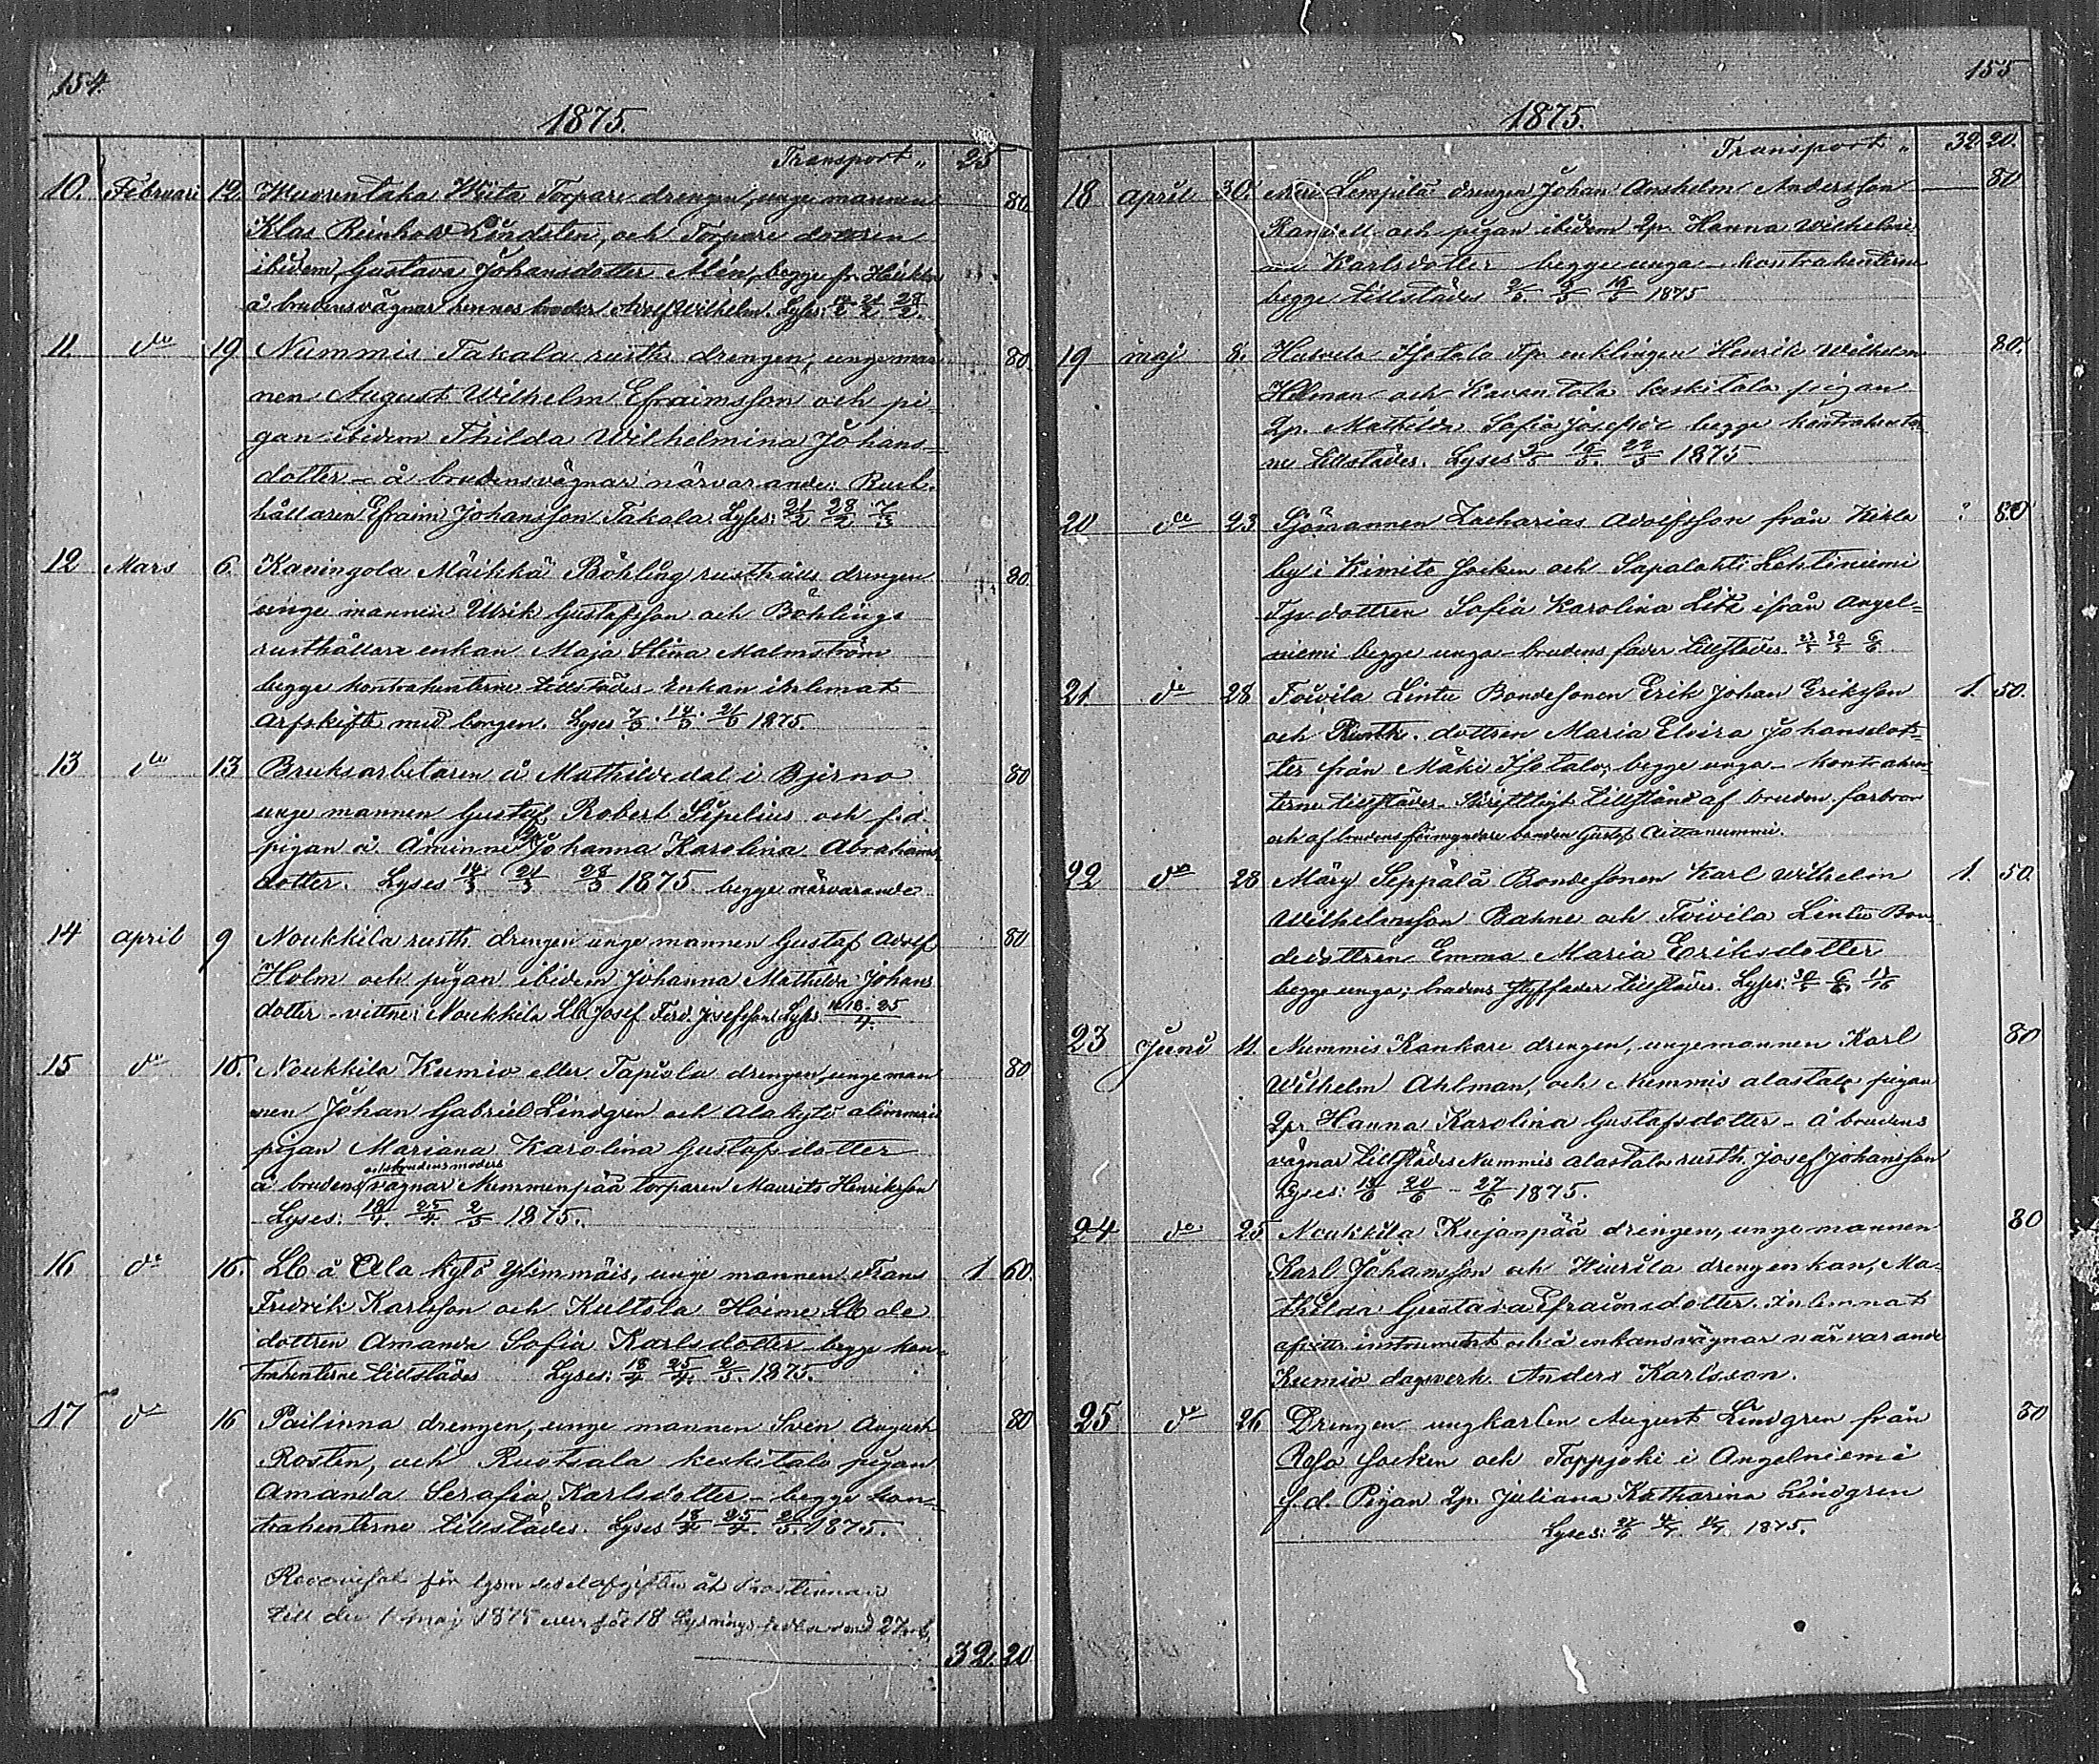 154.
1875.
Transport „ 25
10. Februari 12. Wuorentaka Wiita Torpare drengen, unge mannen 80.
Klas Reinhold Lindsten, och Torpare dottren
ibidem Gustava Johansdotter Alén, begge fr.
å brudens vägnar hennes broder Adolf Wilhelm. Lyses: 14/2 21/2 28/2.
11. do 19 Nummis Takala rusth. drengen, unge man 80.
nen August Wilhelm Efraimsson och pi-
gan ibidem Thilda Wilhelmina Johans-
dotter - å brudens vägnar närvarande: Rust-
hållaren Efraim Johansson Takala. Lyses: 21/2 28/2 7/3
12 Mars 6. Kaningola Mäikkä Böhling rusthålls drengen 80.
unge mannen Ulrik Gustafsson och Böhlings
rusthållare enkan Maja Stina Malmström
begge kontrahenterne tillstädes. Enkan inlemnat
arfskifte med borgen. Lyses 7/3. 14/3. 21/3 1875.
13 do 13 Bruksarbetaren å Mathildedal i Bjerno 80
unge mannen Gustaf Robert Sipelius och f.d.
pigan å Åminne Qp. Johanna Karolina Abrahams
dotter. Lyses 14/3 21/3 28/3 1875 begge närvarande
14 April 9 Noukkila rusth. drengen unge mannen Gustaf Adolf 80
Holm och pigan ibidem Johanna Mathilda Johans
dotter - vittne: Noukkila Josef Ferd. Josefsson Lyses. 11. 18. 25/4.
15 do 10. Noukkila Kumio eller Tapiola drengen, unge man 80.
nen Johan Gabriel Lindgren och Alakytö alimmäis
pigan Mariana Karolina Gustafsdotter
och brudens moders
å brudens vägnar Nummenpää torparen Maurits Henriksson
Lyses: 18/4. 25/4. 2/5 1875.
16 do 16. Lb å Ala kytö Ylimmäis, unge mannen Frans 1 60.
Fredrik Karlsson och Kultola Heime Lb de
dottren Amanda Sofia Karlsdotter begge kon-
trahenterne tillstädes Lyses: 18/4 25/4. 2/5. 1875.
17 do 16 Pailinna drengen, unge mannen Sven August 80
Rosten, och Ruotsala keskitalo pigan
Amanda Serafia Karlsdotter - begge kon-
trahenterne tillstädes. Lyses 18/4 25/4. 2/5. 1875.
för lysn sedelafgiften åt Prostinnan
till den 1 maj 1875 för 18 Lysnings sedlar med
32. 20
155
1875.
Transport „ 32 20.
18 April 30. Lempilä drengen Johan Anshelm Andersson 80
Randell och pigan ibidem Qp. Hanna Wilhelmi
na Karlsdotter begge unga - kontrahenterne
begge tillstädes 2/5. 9/5 16/5 1875
19 maj 8. Isotalo Tp. enklingen Henrik Wilhelm 80.
Helman och Kavantola keskitalo pigan
Qp. Mathilda Sofia begge kontrahenter
ne tillstädes. Lyses 16/5. 1875.
20 do 23 Sjömannen Zacharias Adolfsson från 80
by i Kimito Socken och Sapalahti Lehtiniemi
Tp. dottren Sofia Karolina ifrån Angel-
niemi begge unga - brudens fader tillstädes. 23/5 30/5 6/6
21 do 28 Toivila Lintu Bondesonen Erik Johan Eriksson 1. 50.
och Rusth. dottren Maria Elvira Johansdot-
ter från Mäki Isotalo, begge unga - kontrahen-
terne tillstädes. Skriftligt tillstånd af bruden farbror
och af brudens förmyndare bonden Gustaf Aittanummi.
22 do 28 Märy Seppälä Bondesonen Karl Wilhelm 1. 50.
Wilhelmsson Bahne och Toivila Lintu Bon
dedottren Emma Maria Eriksdotter
begge unga; brudens styffader tillstädes. Lyses: 30/5 6/6 13/6
23 Juni 11. Nummis Kankare drengen, unge mannen Karl 80
Wilhelm Ahlman, och Nummis alastalo pigan
Qp. Hanna Karolina Gustafsdotter - å brudens
vägnar tillstädes Nummis alastalo rusth. Josef Johansson
Lyses: 13/6 20/6 - 27/6 1875.
24 do 25 Noukkila Kujanpää drengen, unge mannen 80
Karl Johansson och drengenkan, Ma-
thilda Gustava Efraimsdotter. Inlemnat
afvittr. instrument och å enkans vägnar närvarande
Kumio dagsverk. Anders Karlsson.
25 do 26 Drengen ungkarlen August Lindgren från 80
Socken och Toppjoki i Angelniemi
f.d. Pigan Qp. Juliana Katharina Lindgren
Lyses: 27/6 4/7. 11/7. 1875.